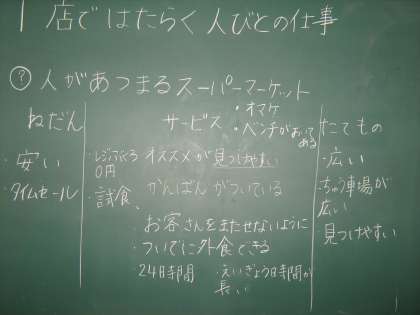 1 店ではたらく人びとの仕事
? 人があつまるスーパーマーケット
ねだん
・安い
・タイムセール
サービス
・オマケ
・ベンチがおいてある
・レジぶくろ0円
・試食、
オススメが見つけやすい
かんばんがついている
・お客さんをまたせないように
・ついでに外食できる
・24時間
・えいぎょう時間が長い
たてもの
・広い
・ちゅう車場が広い
・見つけやすい